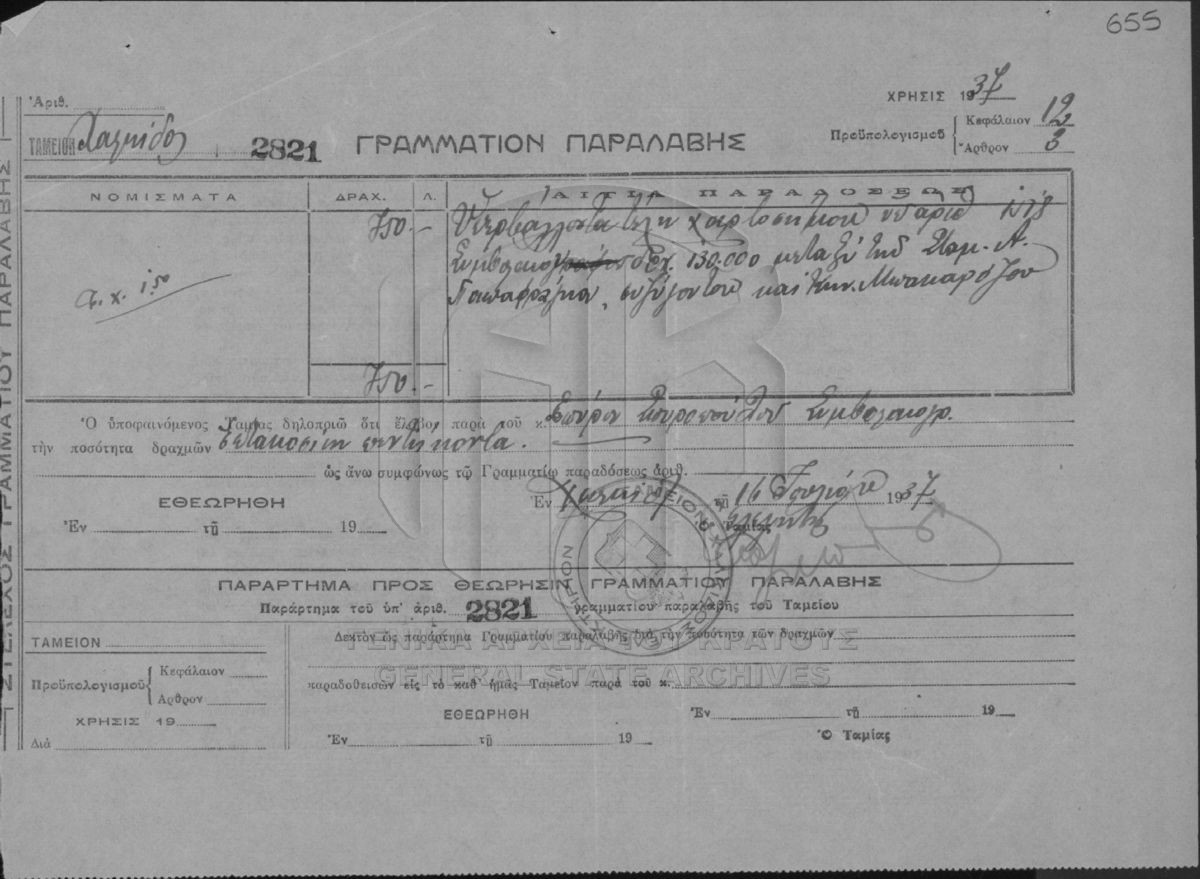 655
Ἀριθ.
ΧΡΗΣΙΣ 1937
ΤΑΜΕΙΟΝ Χαλκίδος 2821 ΓΡΑΜΜΑΤΙΟΝ ΠΑΡΑΛΑΒΗΣ
Προϋπολογισμοῦ Κεφάλαιον 12
Ἄρθρον 3
ΝΟΜΙΣΜΑΤΑ ΔΡΑΧ. Λ. ΑΙΤΙΑ ΠΑΡΑΔΟΣΕΩΣ
750.-
τέλη χαρτοσήμου ὑπ' ἀριθ
δρχ. 130.000 μεταξύ τῆς Σταμ. Α.
καὶ Κων.
750.-
Ὁ ὑποφαινόμενος Ταμίας δηλοποιῶ ὅτι ἔλαβον παρὰ τοῦ κ. Σπύρου Συμβολαιογρ.
τὴν ποσότητα δραχμῶν ἑπτακοσίων πεντήκοντα.
ὡς ἄνω συμφώνως τῷ Γραμματίῳ παραδόσεως ἀριθ.
ΕΘΕΩΡΗΘΗ
Ἐν Χαλκίδι τῇ 16 Ἰουλίου 1937
Ἐν τῇ 19
Ὁ Ταμίας
ΠΑΡΑΡΤΗΜΑ ΠΡΟΣ ΘΕΩΡΗΣΙΝ ΓΡΑΜΜΑΤΙΟΥ ΠΑΡΑΛΑΒΗΣ
Παράρτημα τοῦ ὑπ' ἀριθ. 2821 γραμματίου παραλαβῆς τοῦ Ταμείου
ΤΑΜΕΙΟΝ
Δεκτὸν ὡς παράρτημα Γραμματίου παραλαβῆς διὰ τὴν ποσότητα τῶν δραχμῶν
ΓΕΝΙΚΑ ΑΡΧΕΙΑ ΤΟΥ ΚΡΑΤΟΥΣ
GENERAL STATE ARCHIVES
Προϋπολογισμοῦ Κεφάλαιον
Ἄρθρον
παραδοθεισῶν εἰς τὸ καθ' ἡμᾶς Ταμεῖον παρὰ τοῦ κ.
ΧΡΗΣΙΣ 19
ΕΘΕΩΡΗΘΗ
Ἐν τῇ 19
Διά
Ἐν τῇ 19
Ὁ Ταμίας
ΣΤΕΛΕΧΟΣ ΓΡΑΜΜΑΤΙΟΥ ΠΑΡΑΛΑΒΗΣ